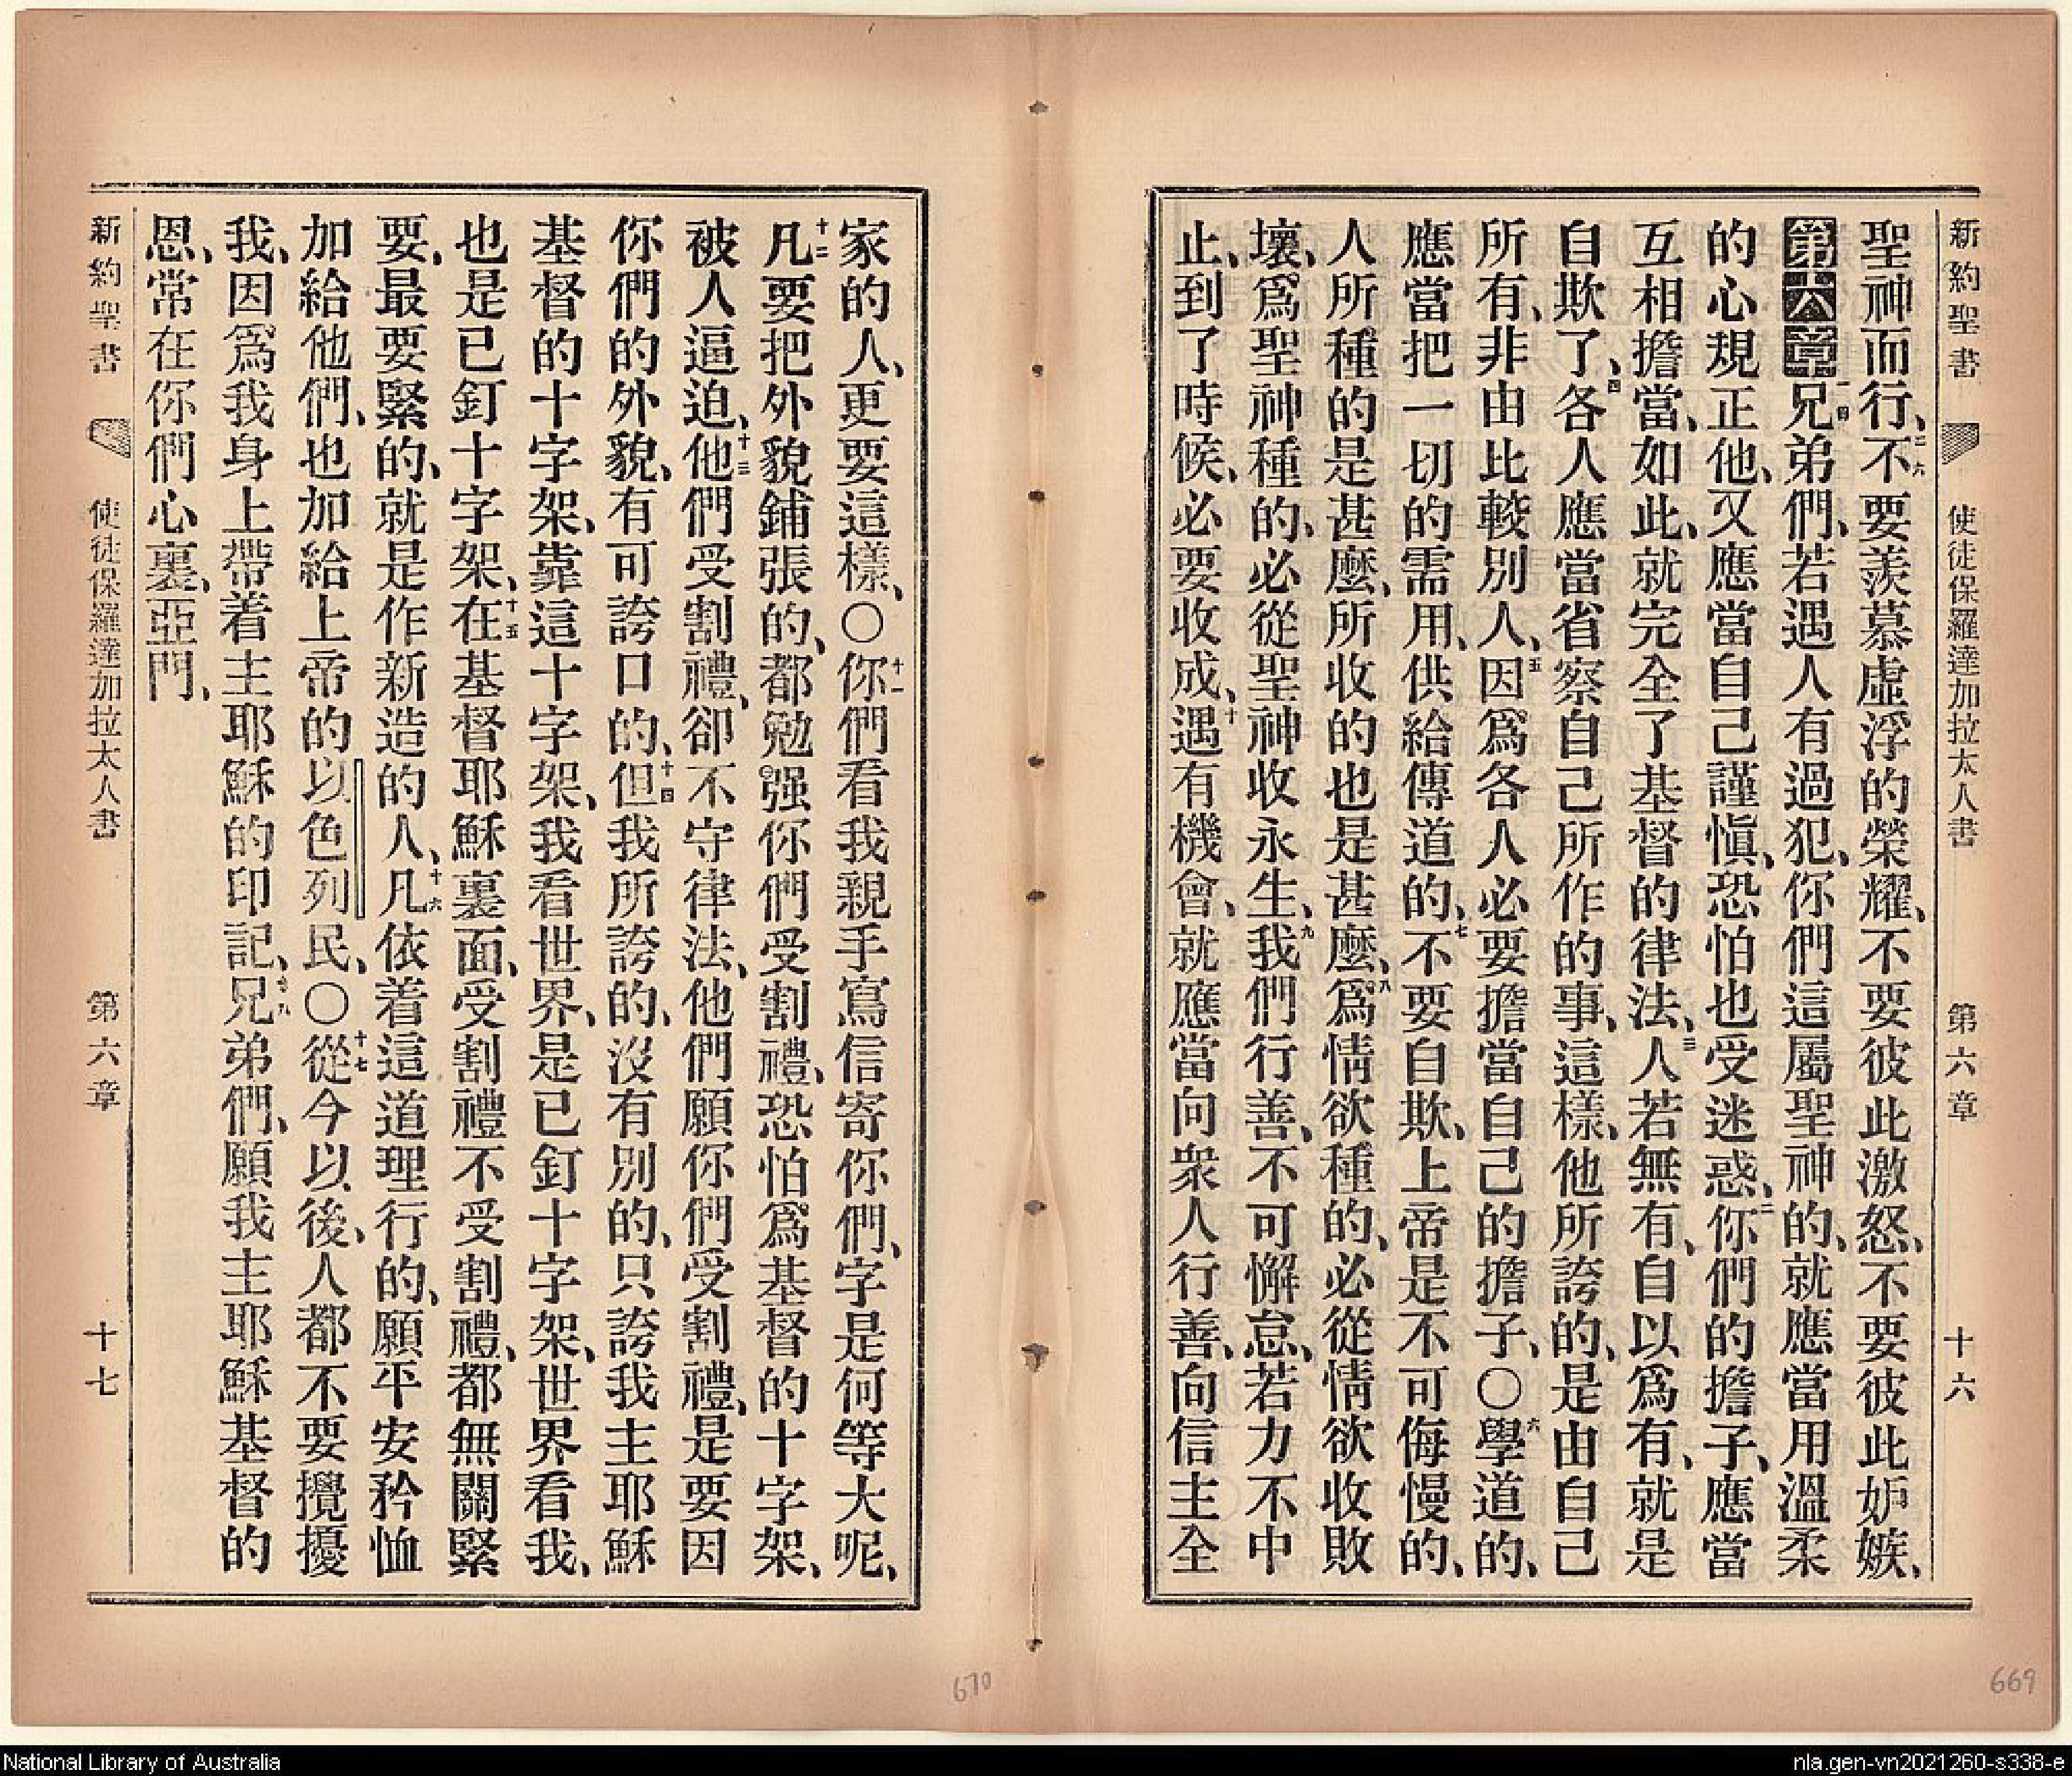 新約聖書 使徒保羅達加拉太人書 第六章 十六
聖神而行、二六不要羨慕虛浮的榮耀、不要彼此激怒、不要彼此妒嫉、
第六章一兄弟們、若遇人有過犯、你們這屬聖神的、就應當用溫柔
的心規正他、又應當自己謹愼、恐怕也受迷惑、二你們的擔子、應當
互相擔當、如此、就完全了基督的律法、三人若無有、自以爲有、就是
自欺了、四各人應當省察自己所作的事、這樣、他所誇的、是由自己
所有、非由比較別人、五因爲各人必要擔當自己的擔子、〇六學道的、
應當把一切的需用、供給傳道的、七不要自欺、上帝是不可侮慢的、
人所種的是甚麼、所收的也是甚麼、八爲情欲種的、必從情欲收敗
壞、爲聖神種的、必從聖神收永生、九我們行善、不可懈怠、若力不中
止、到了時候、必要收成、十遇有機會、就應當向衆人行善、向信主全
家的人、更要這樣、〇十一你們看我親手寫信寄你們、字是何等大呢、
十二凡要把外貌鋪張的、都勉强你們受割禮、恐怕爲基督的十字架、
被人逼迫、十三他們受割禮、卻不守律法、他們願你們受割禮、是要因
你們的外貌、有可誇口的、十四但我所誇的、沒有別的、只誇我主耶穌
基督的十字架、靠這十字架、我看世界、是已釘十字架、世界看我、
也是已釘十字架、十五在基督耶穌裏面、受割禮不受割禮、都無關緊
要、最要緊的、就是作新造的人、十六凡依着這道理行的、願平安矜恤
加給他們、也加給上帝的以色列民、〇十七從今以後、人都不要攪擾
我、因爲我身上帶着主耶穌的印記、十八兄弟們、願我主耶穌基督的
恩、常在你們心裏、亞門、
新約聖書 使徒保羅達加拉太人書 第六章 十七
670
669
National Library of Australia
nla.gen-vn2021260-s338-e